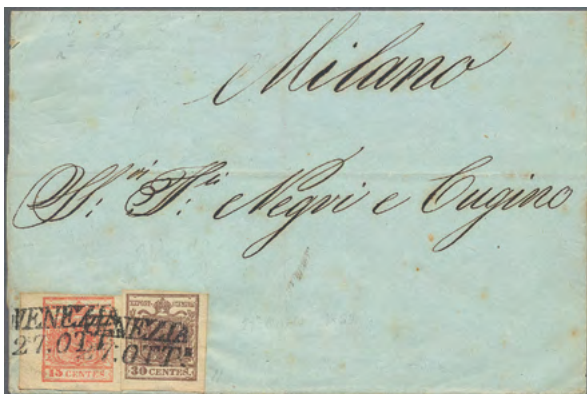 Milano
S.ri F.lli Negri e Cugino
VENEZIA
27.OTT.
VENEZIA
27.OTT.
15 CENTES.
30 CENTES.